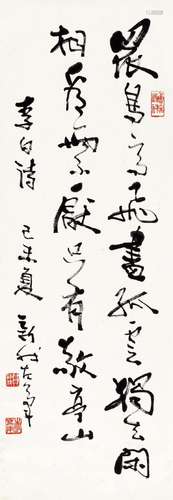 眾鳥高飛盡孤雲獨去閑
相看兩不厭只有敬亭山
李白詩 己未夏 新我左筆